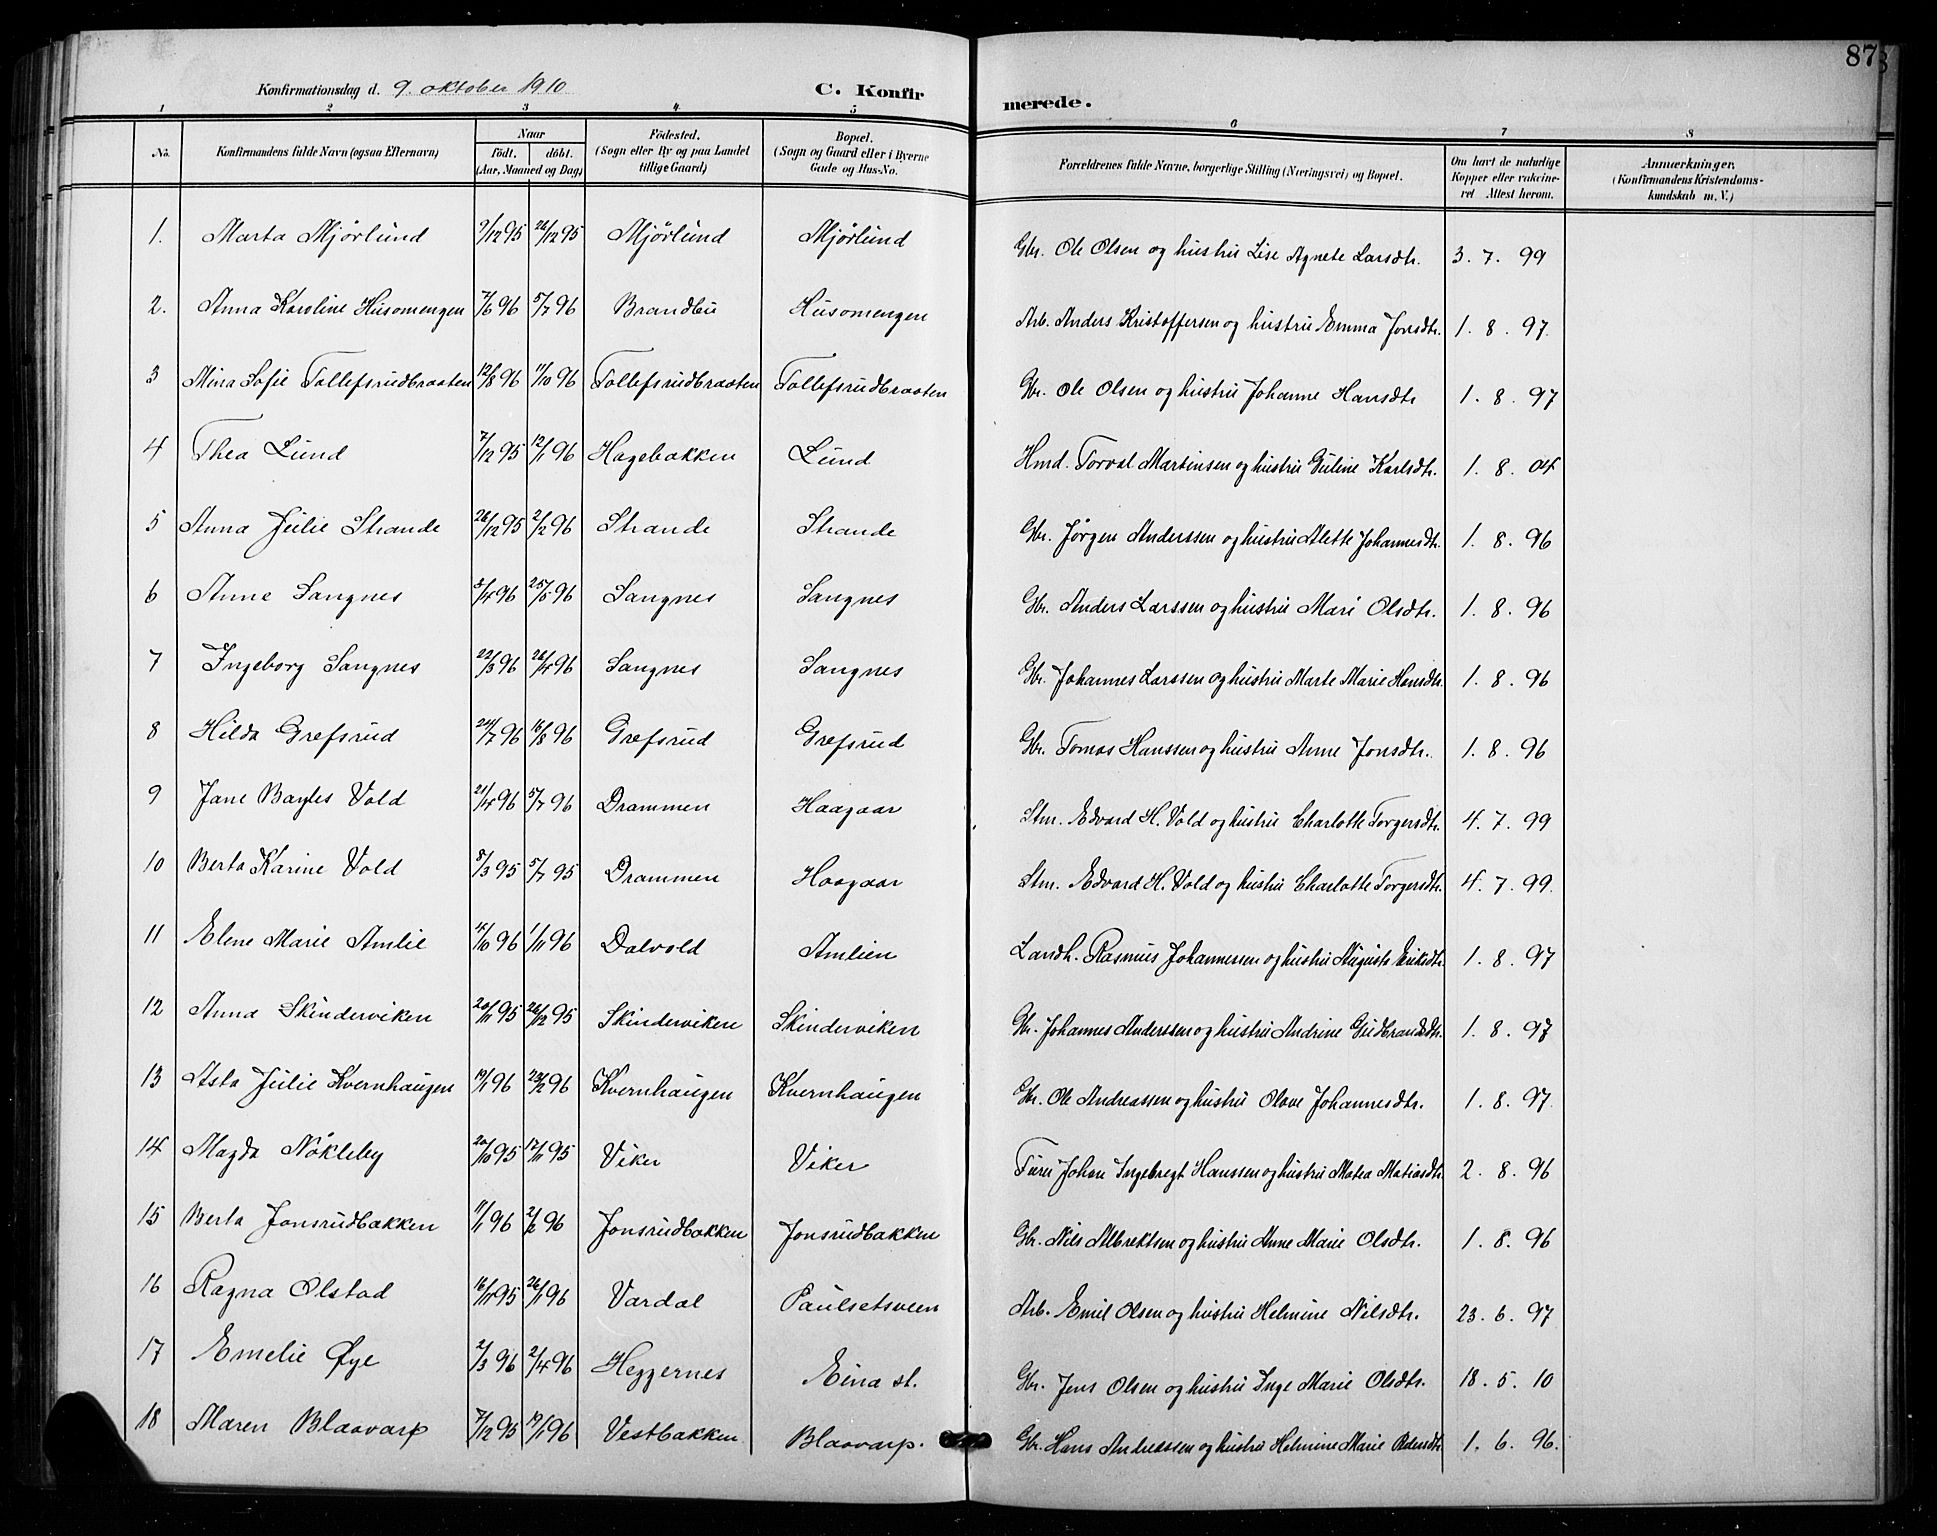 87
Konfirmationsdag d. 9. oktober 1910 C. Konfirmerede.
1 2 3 4 5 6 7 8
No. Konfirmandens fulde Navn (ogsaa Efternavn) Naar Födt. döbt. (Aar, Maaned og Dag) Födested. (Sogn eller By og paa Landet tillige Gaard) Bopæl. (Sogn og Gaard eller i Byerne Gade og Hus-No. Forældrenes fulde Navne, borgerlige Stilling (Næringsvei) og Bopæl. Om havt de naturlige Kopper eller vakcineret Attest herom. Anmærkninger. (Konfirmandens Kristendomskundskab m. V.)
1. Marta Mjørlund 9/12 95 26/12 95 Mjørlund Mjørlund Gbr. Ole Olsen og hustru Lise Agnete Larsdtr. 3. 7. 99
2. Anna Karoline Husomengen 7/6 96 5/7 96 Brandbu Husomengen Arb. Anders Kristoffersen og hustru Emma Jonsdtr. 1. 8. 97
3 Mina Sofie Tollefsrudbraaten 12/8 96 11/10 96 Tollefsrudbraaten Tollefsrudbraaten Gbr. Ole Olsen og hustru Johanne Hansdtr 1. 8. 97
4 Thea Lund 7/12 95 12/1 96 Hagebakken Lund Hmd. Torval Martinsen og hustru Guline Karlsdtr. 1. 8. 04
5 Anna Julie Strande 26/12 95 2/2 96 Strande Strande Gbr. Jørgen Anderssen og hustru Alette Johannesdtr. 1. 8. 96
6 Anne Sangnes 3/4 96 25/5 96 Sangnes Sangnes Gbr. Anders Larssen og hustru Mari Olsdtr. 1. 8. 96
7 Ingeborg Sangnes 22/3 96 26/4 96 Sangnes Sangnes Gbr. Johannes Larssen og hustru Marte Marie Hansdtr. 1. 8. 96
8 Hilda Grefsrud 24/7 96 16/8 96 Grefsrud Grefsrud Gbr. Tomas Hanssen og hustru Anne Jonsdtr. 1. 8. 96
9 Jane Bayles Vold 21/4 96 5/7 96 Drammen Haagaar Stm. Edvard H. Vold og hustru Charlotte Torgersdtr. 4. 7. 99
10 Berta Karine Vold 5/3 95 5/7 95 Drammen Haagaar Stm. Edvard H. Vold og hustru Charlotte Torgersdtr. 4. 7. 99.
11 Elene Marie Amlie 4/10 96 1/11 96 Dalvold Amlien Landh. Rasmus Johannessen og hustru Augusta Eriksdtr. 1. 8. 97
12 Anna Skinderviken 20/11 95 26/12 95 Skinderviken Skinderviken Gbr. Johannes Anderssen og hustru Andrine Gudbrandsdtr. 1. 8. 97
13 Asta Julie Kvernhaugen 19/1 96 23/2 96 Kvernhaugen Kvernhaugen Gbr. Ole Andreassen og hustru Olave Johannesdtr. 1. 8. 97
14 Magda Nøkleby 20/10 95 17/11 95 Viker Viker Johan Ingebregt Hanssen og hustru Matea Matiasdtr. 2. 8. 96
15 Berta Jonsrudbakken 11/1 96 2/2 96 Jonsrudbakken Jonsrudbakken Gbr. Nils Albrektsen og hustru Anne Marie Olsdtr. 1. 8. 96
16 Ragna Olstad 16/11 95 26/1 96 Vardal Paulsetsveen Arb. Emil Olsen og hustru Helmine Nilsdtr. 23. 6. 97
17 Emelie Øye 2/3 96 2/4 96 Heggernes Eina st. Gbr. Jens Olsen og hustru Inge Marie Olsdtr. 18. 5. 10
18 Maren Blaavarp 7/12 95 19/1 96 Vestbakken Blaavarp. Gbr. Hans Andreassen og hustru Helmine Marie 1. 6. 96.